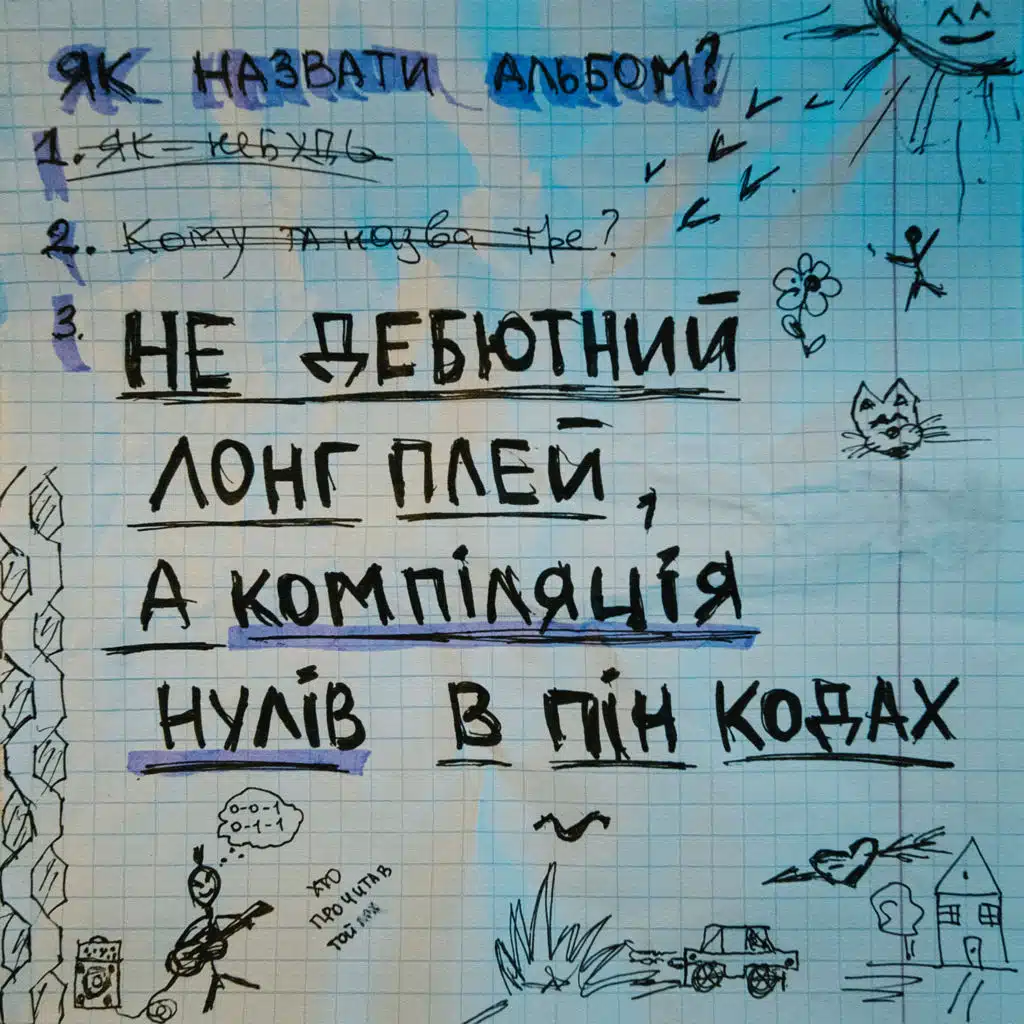 ЯК НАЗВАТИ АЛЬБОМ?
1. ЯК-НЕБУДЬ
2. Кому та назва тре?
3. НЕ ДЕБЮТНИЙ
ЛОНГ ПЛЕЙ,
А КОМПІЛЯЦІЯ
НУЛІВ В ПІН КОДАХ
0-0-1
0-1-1
ХТО
ПРОЧИТАВ
ТОЙ